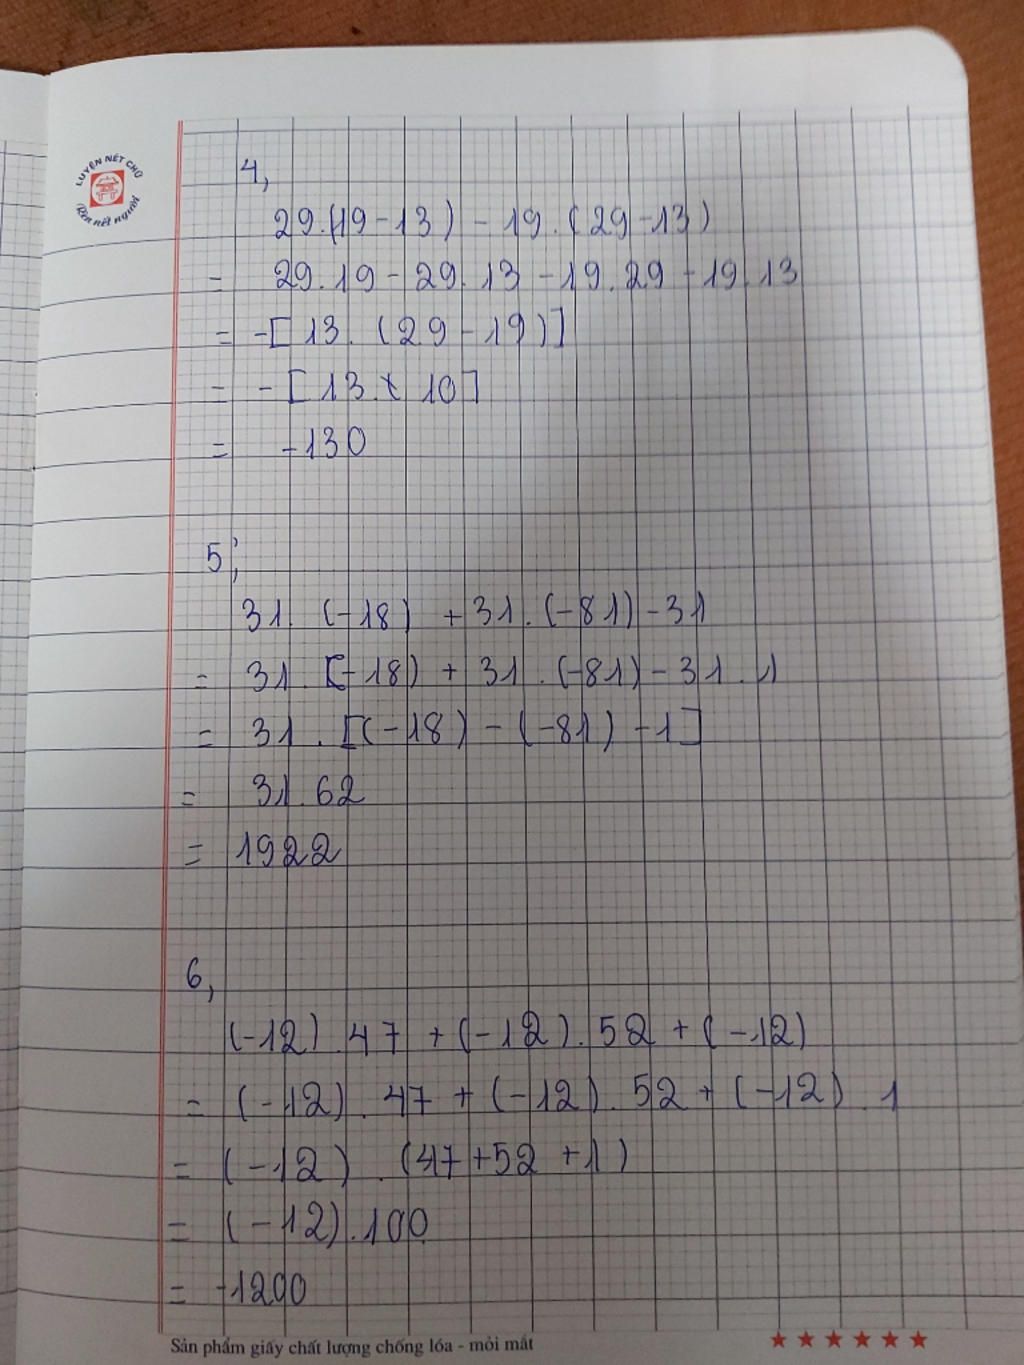 LUYỆN NÉT CHỮ
Rèn nết người
4,
29.(19-13) - 19.(29-13)
= 29.19 - 29.13 - 19.29 - 19.13
= -[13.(29-19)]
= -[13 x 10]
= -130
5;
31.(-18) + 31.(-81) - 31
= 31.(-18) + 31.(-81) - 31.1
= 31.[(-18) - (-81) - 1]
= 31.62
= 1922
6,
(-12).47 + (-12).52 + (-12)
= (-12).47 + (-12).52 + (-12).1
= (-12).(47+52+1)
= (-12).100
= -1200
Sản phẩm giấy chất lượng chống lóa - mỏi mắt